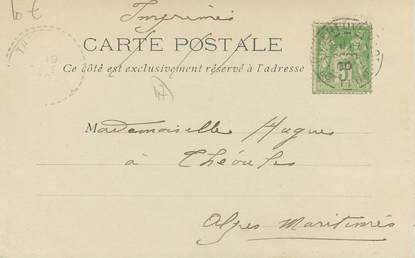 10 €
Imprimés
CARTE POSTALE
Ce côté est exclusivement réservé à l'adresse
Mademoiselle Hugues
à Théoules
Alpes Maritimes